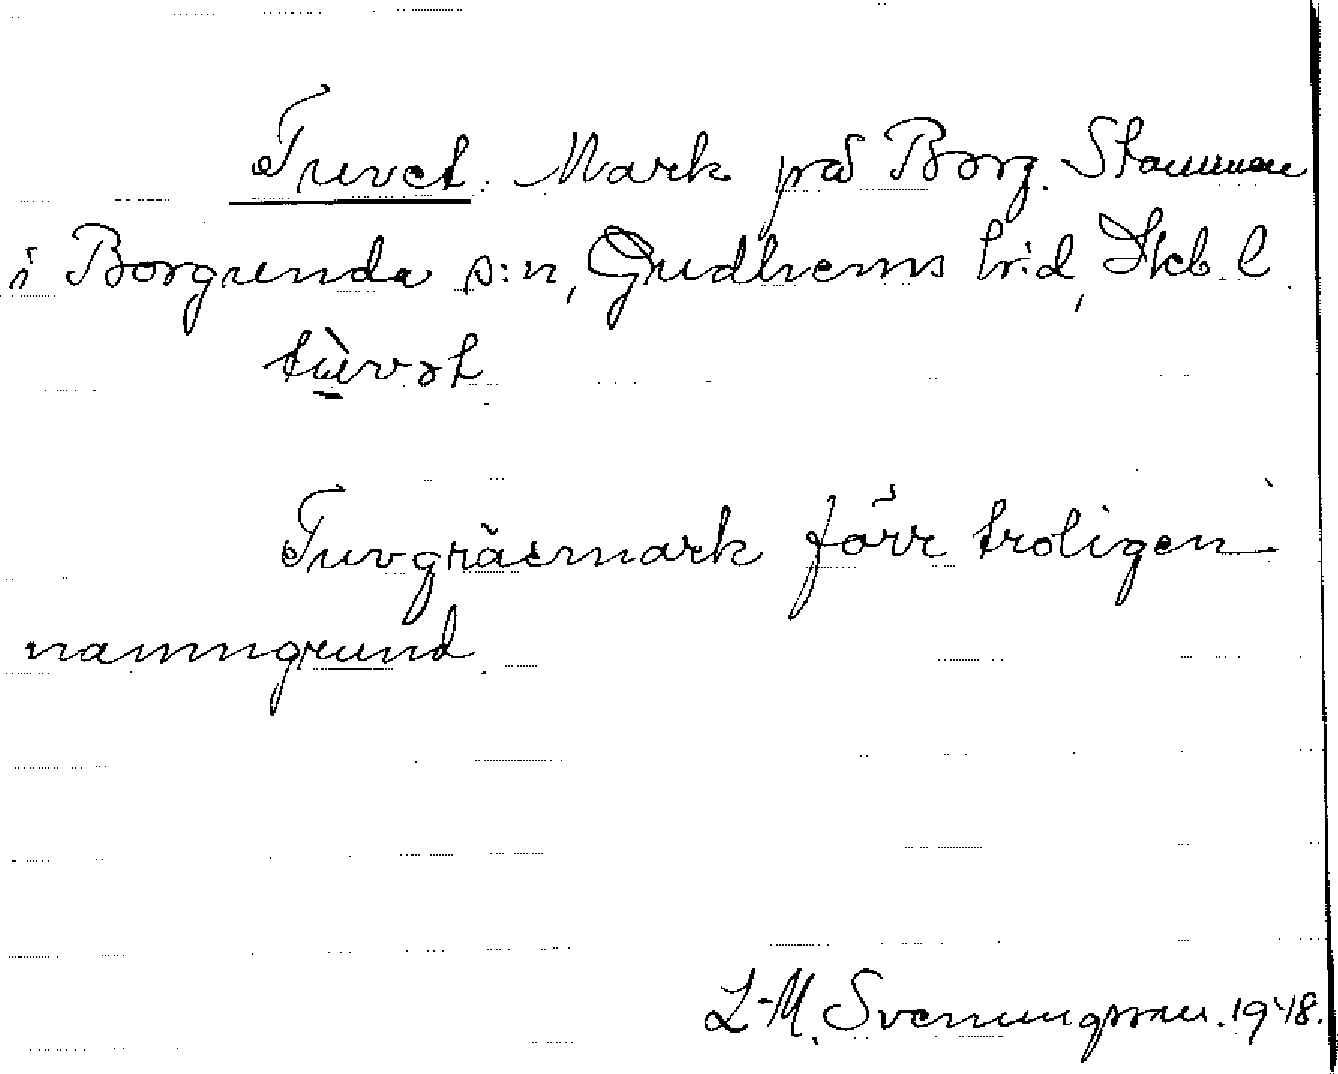 Tuvet. Mark på Borg. Stommen
i Borgunda s:n, Gudhems hrd, Skb. l.
tùvət
Tuvgräsmark förr troligen
namngrund.
L-M. Svenungsson. 1948.